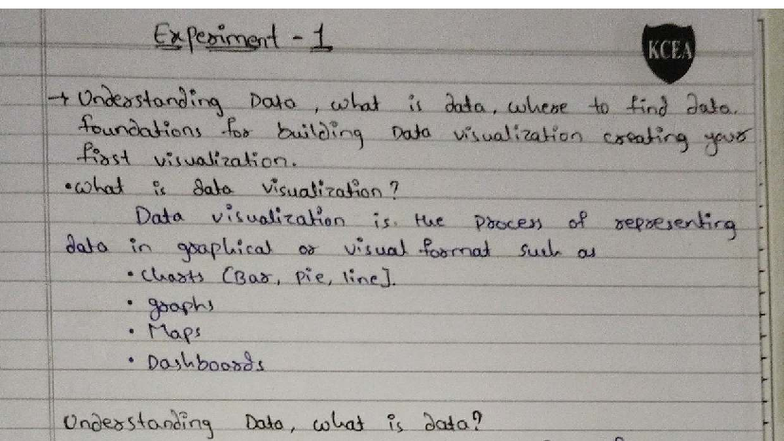 Experiment - 1
KCEA
→ Understanding Data, what is data, where to find data.
foundations for building Data visualization creating your
first visualization.
• what is data visualization?
Data visualization is the process of representing
data in graphical or visual format such as
• charts [Bar, Pie, line].
• graphs
• Maps
• Dashboards
Understanding Data, what is data?